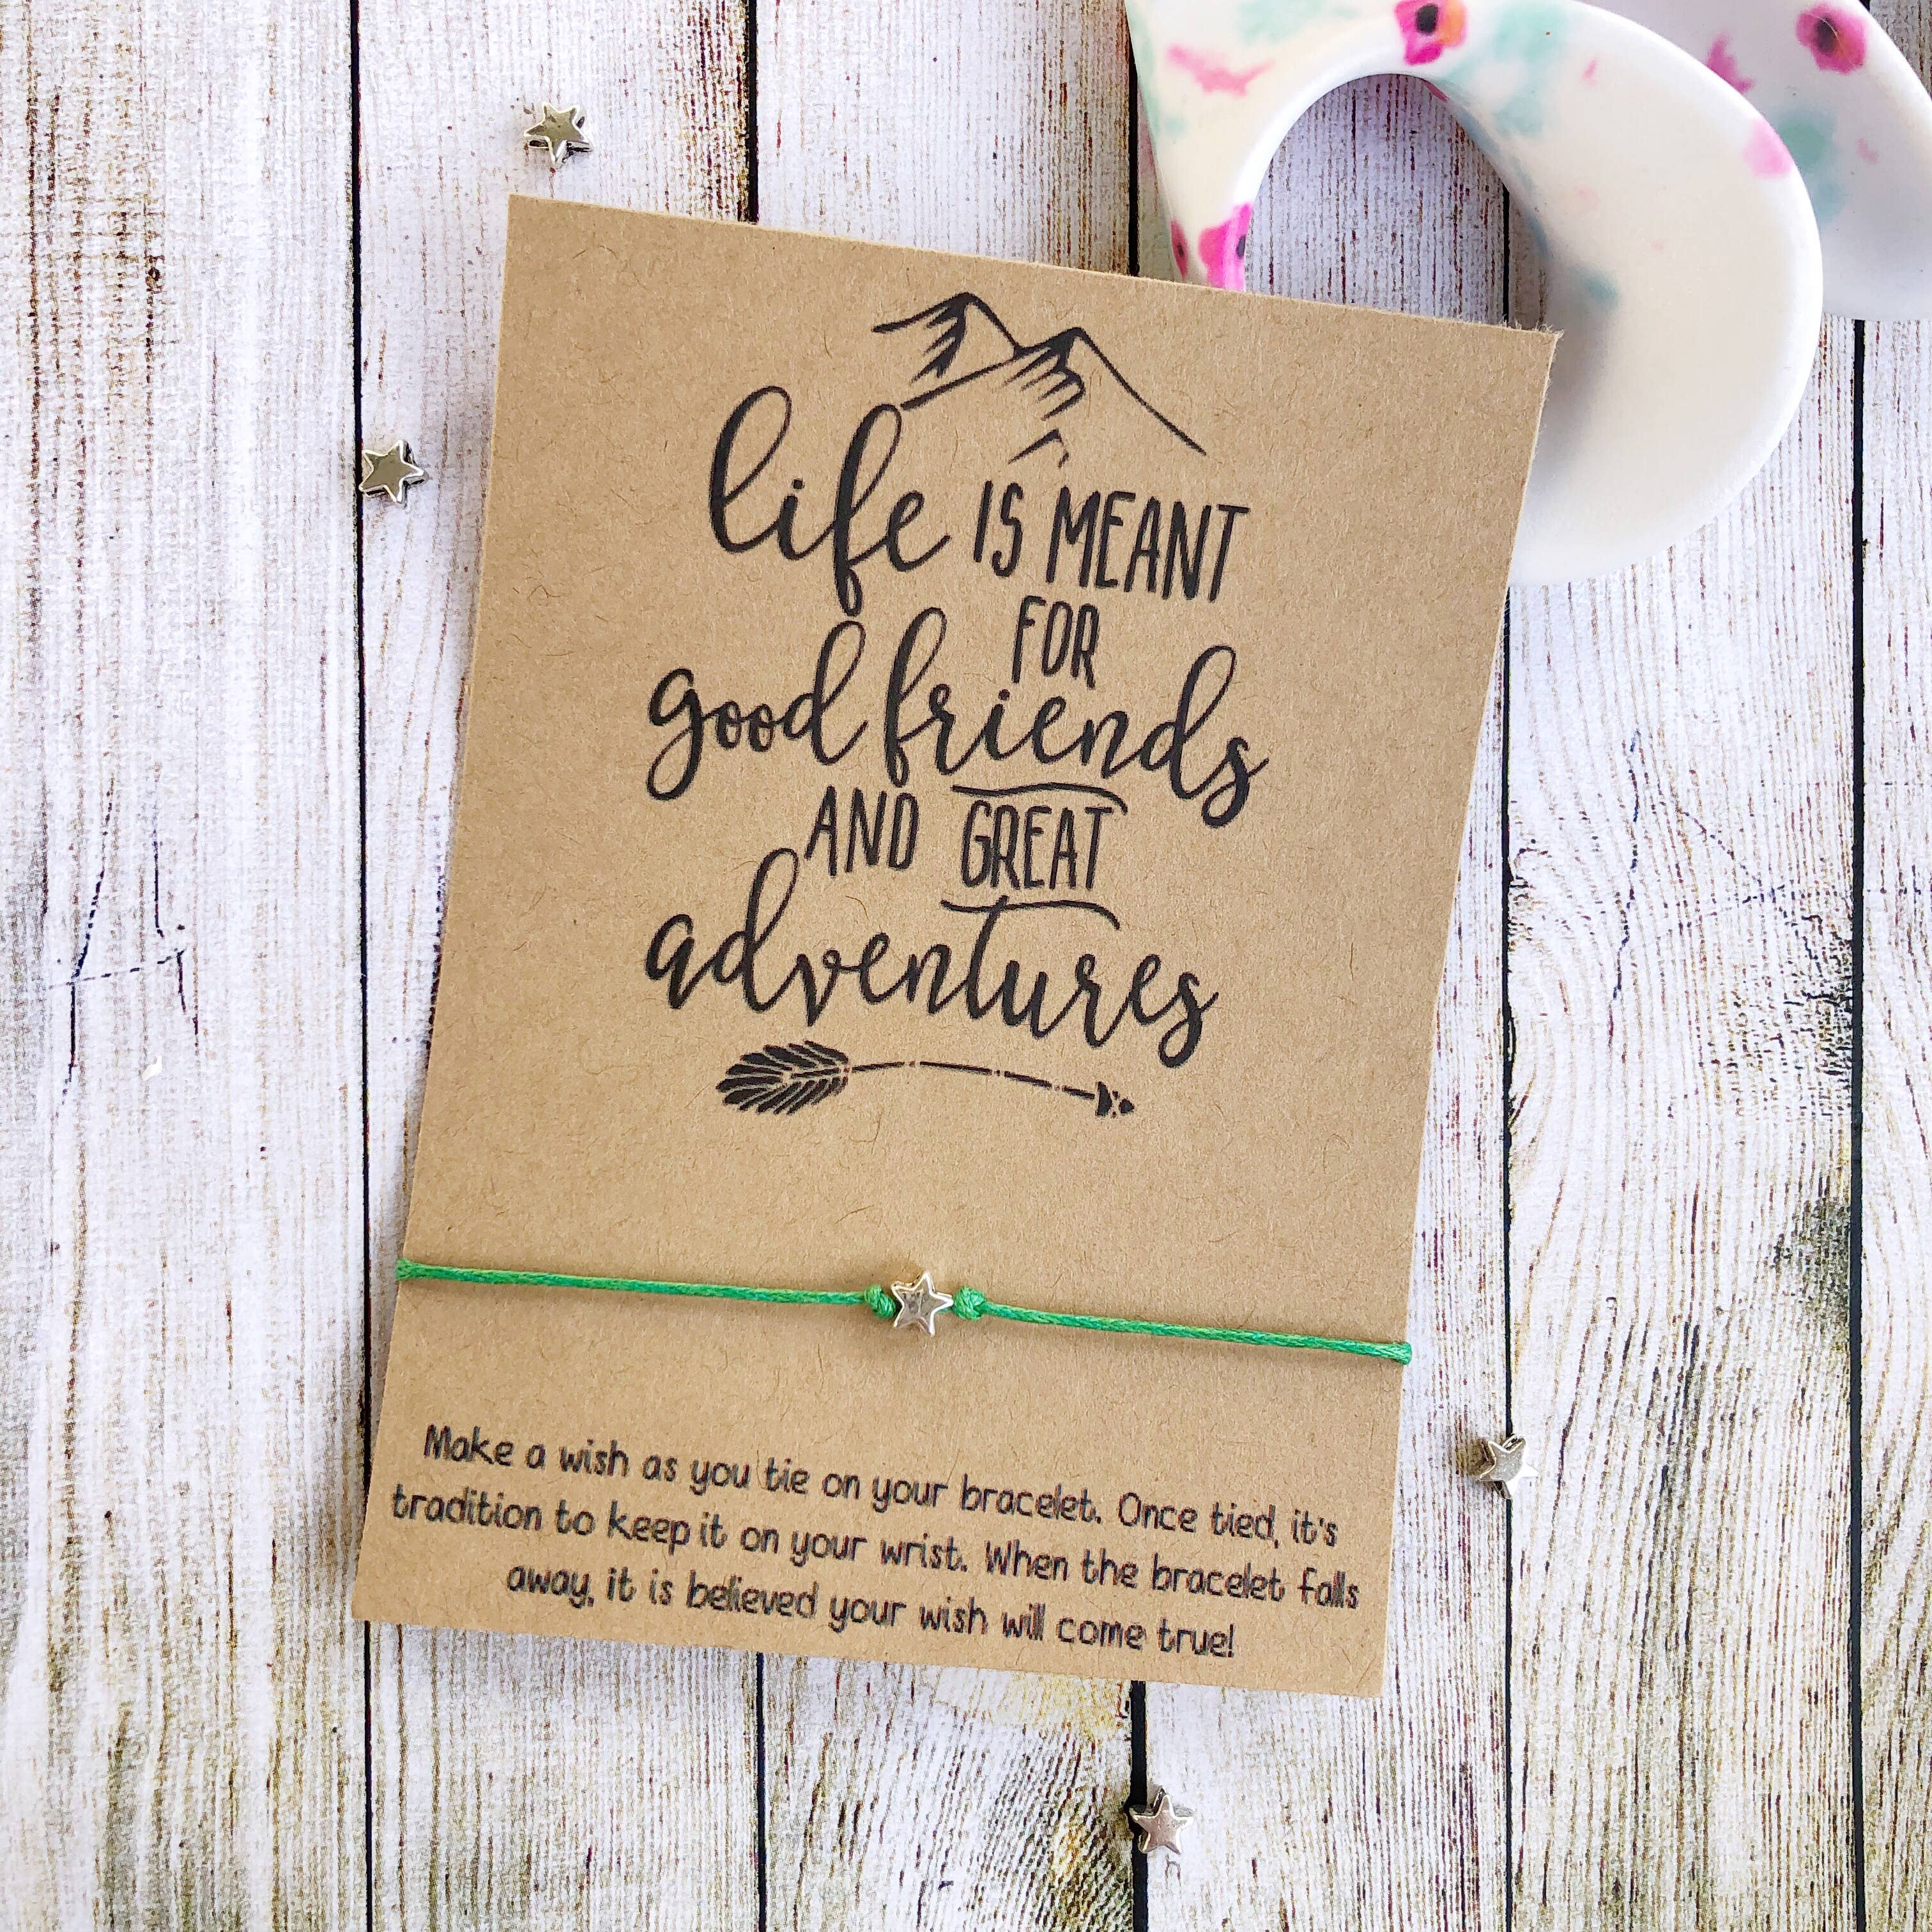 life IS MEANT
FOR
good friends
AND GREAT
adventures
Make a wish as you tie on your bracelet. Once tied, it's
tradition to keep it on your wrist. When the bracelet falls
away, it is believed your wish will come true!